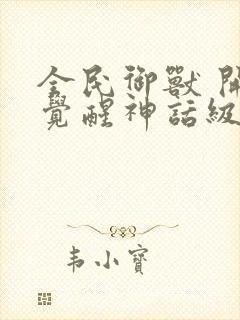 全民御獸 開
覺醒神話級
韦小寶